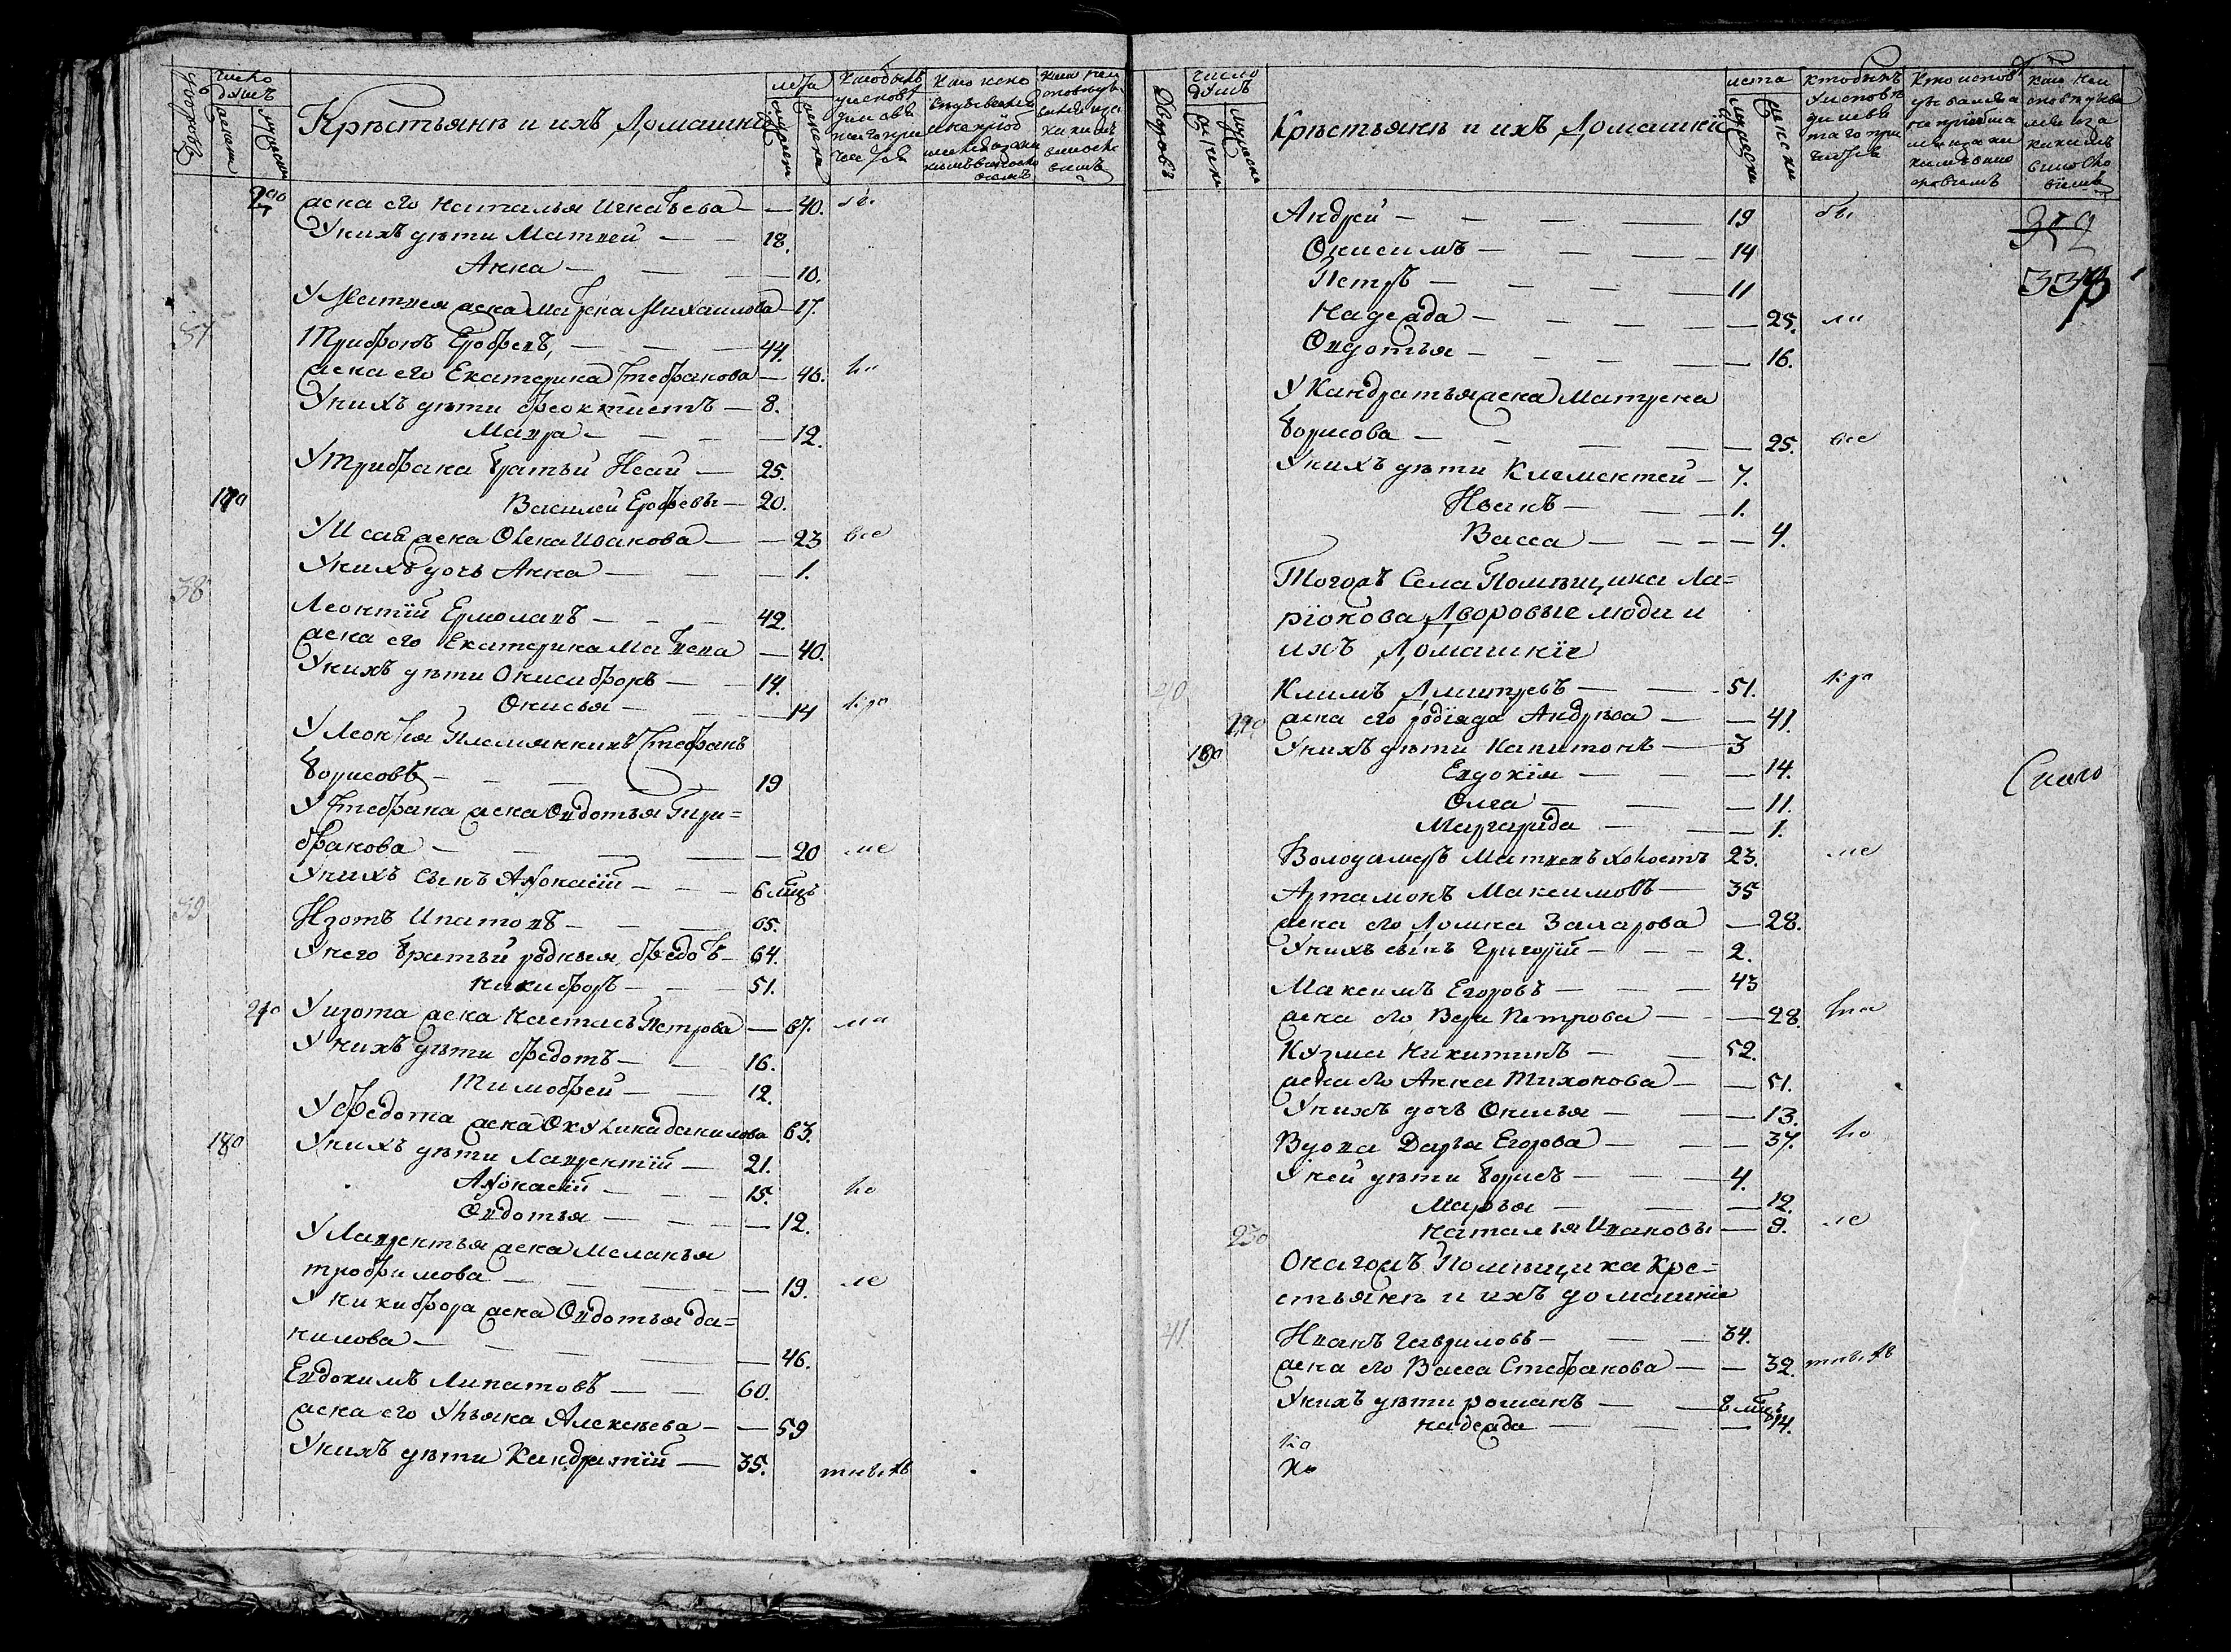 число душъ
лета
Крѣстьянѣ и ихъ Домашнии
200
жена его Наталья Игнатьева — 40. бы
У нихъ дѣти Матвей — 18.
Анна — 10.
У Матвея жена Матрена Михаилова — 17.
37
Трифонъ Ерофеевъ, — 44.
жена его Екатерина Стефанова — 46.
У нихъ дѣти Ѳеоктистъ — 8.
Мавра — 12.
У Трифана братьи Исаи — 25.
Василей Ерофеевы — 20.
У Исая жена Олена Иванова — 23 все
У нихъ дочь Анна — 1.
38
Леонтий Ермолаевъ — 42.
жена его Екатерина — 40.
У нихъ дѣти Онисифоръ — 14.
Онисья — 14
У Леонтия Племянникъ Стефанъ
Борисовъ — 19
У Стефана жена Овдотья Три=
фанова — 20
У нихъ сынъ Афонасий — 6 мцъ
39
Изотъ Ипатовъ — 65.
У него братьи родныя Федотъ — 64.
Никифоръ — 51.
210
У изота жена Настасъ Петрова — 67.
У нихъ дѣти Федотъ — 16.
Тимофей — 12.
У Федота жена Окулина Данилова 63.
180
У нихъ дѣти Лаврентий — 21.
Афонасий — 15.
Овдотья — 12.
У Лаврентья жена Меланья
трофимова — 19.
У Никифора жена Овдотья Да=
нилова — 46.
Евдокимъ Липатовъ — 60.
жена его Ульяна Алексѣева — 59
У нихъ дѣти Кандратий — 35.
Дворовъ
число душъ
лета
Крѣстьянѣ и ихъ Домашнии
352
337
Андрей — 19 бы
Онисимъ — 14
Петръ — 11
Надежда — 25. ли
Овдотья — 16.
У Кандратья жена Матрена
Борисова — 25. все
У нихъ дѣти Клементей — 7.
Иванъ — 1.
Васса — 4.
Тогожъ Села Помѣщика Ла=
риюнова Дворовые люди и
ихъ Домашние
40
Климъ Дмитревъ — 51.
жена его Андрѣва — 41.
190
У нихъ дѣти Капитонъ — 3
Евдокия — 14.
Олга — 11.
Маргарида — 1.
Володимеръ Матвеевъ холостъ 23.
Артамонъ Максимовъ — 35
жена его Домна Захарова — 28.
У нихъ сынъ Григорий — 2.
Максимъ Егоровъ — 43
жена его Вера Петрова — 28.
Кузма Никитинъ — 52.
жена его Анна Тихонова — 51.
У нихъ дочь Онисья — 13.
Вдова Дарья Егорова — 37.
У ней дѣти Борисъ — 4.
Марья — 12.
230
Наталья Ивановы — 9.
Онагожъ Помѣщика Кре=
стьянѣ и ихъ домашние
41
Иванъ Гавриловъ — 34.
жена его Васса Стефанова — 32.
У нихъ дѣти романъ — 8 мцъ
надежда — 14.